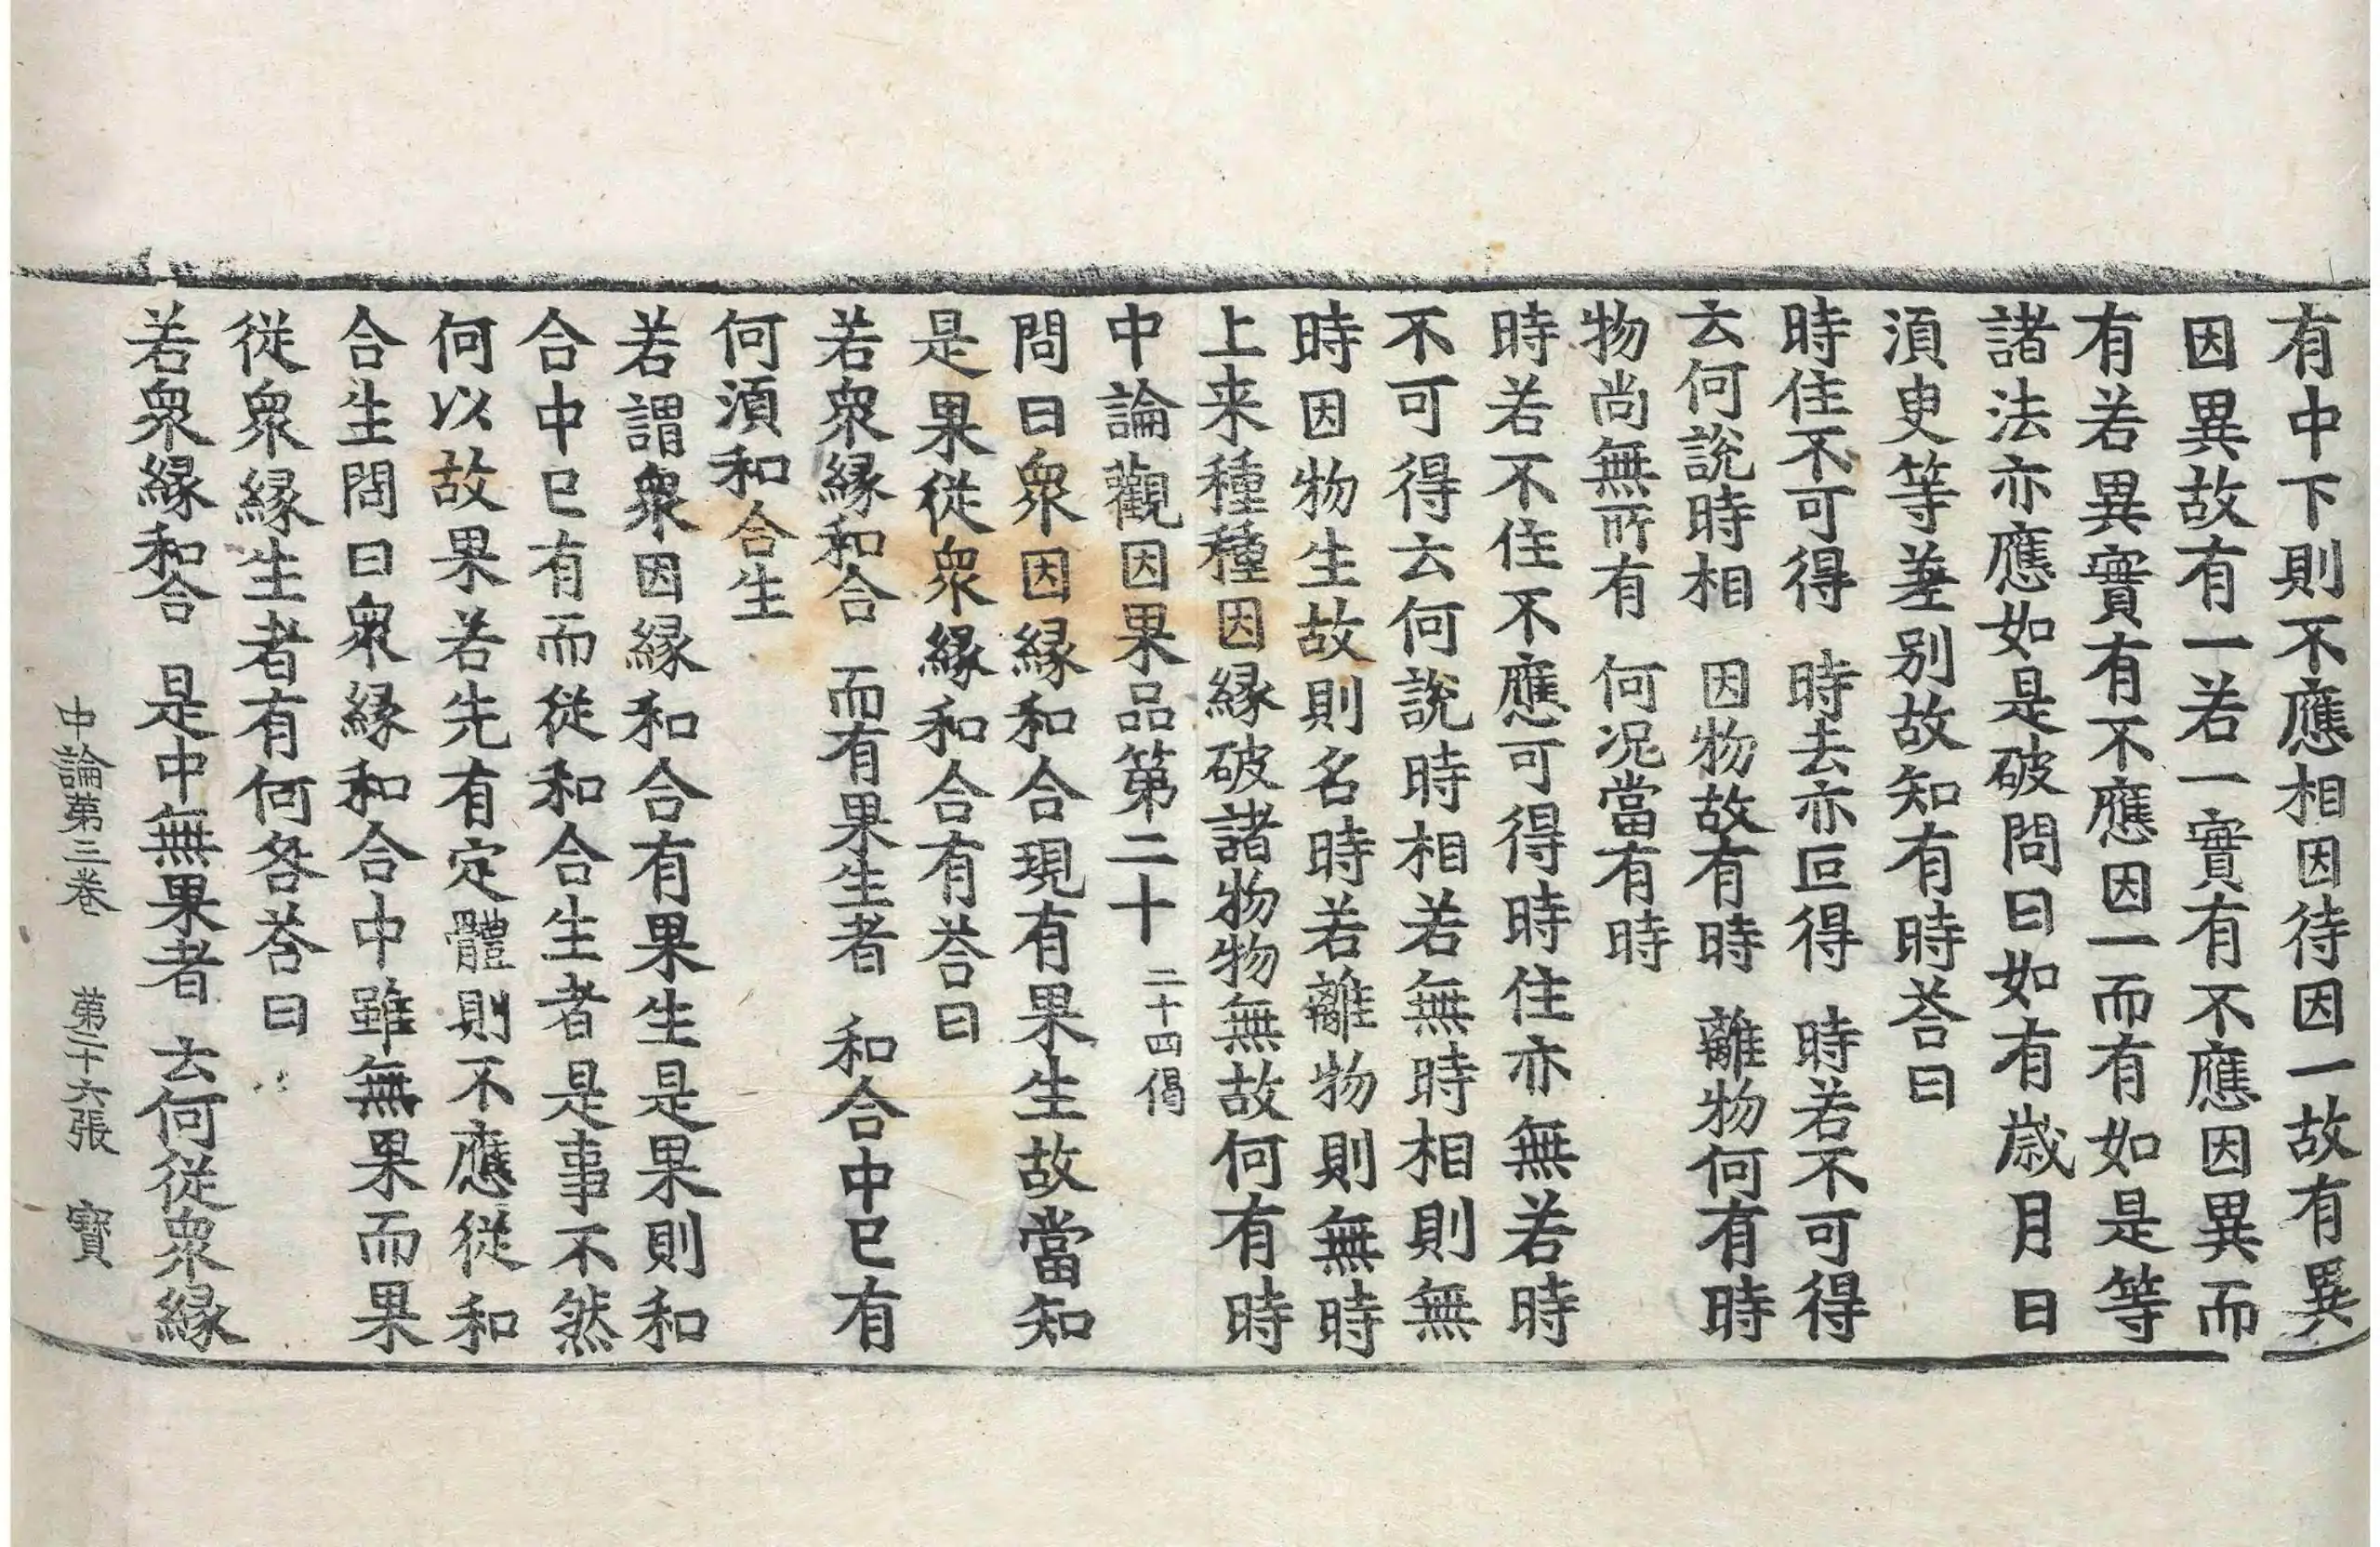 有中下則不應相因待因一故有異
因異故有一若一實有不應因異而
有若異實有不應因一而有如是等
諸法亦應如是破問曰如有歳月日
湏臾等差別故知有時荅曰
時住不可得　時去亦叵得　時若不可得
云何說時相　因物故有時　離物何有時
物尚無所有　何况當有時
時若不住不應可得時住亦無若時
不可得云何說時相若無時相則無
時因物生故則名時若離物則無時
上来種種因縁破諸物物無故何有時
中論觀因果品第二十　二十四偈
問曰衆因縁和合現有果生故當知
是果從衆縁和合有荅曰
若衆縁和合　而有果生者　和合中已有
何湏和合生
若謂衆因縁和合有果生是果則和
合中已有而從和合生者是事不然
何以故果若先有定體則不應從和
合生問曰衆縁和合中雖無果而果
從衆縁生者有何咎荅曰
若衆縁和合　是中無果者　云何從衆縁
中論第三卷　第二十六張　寳